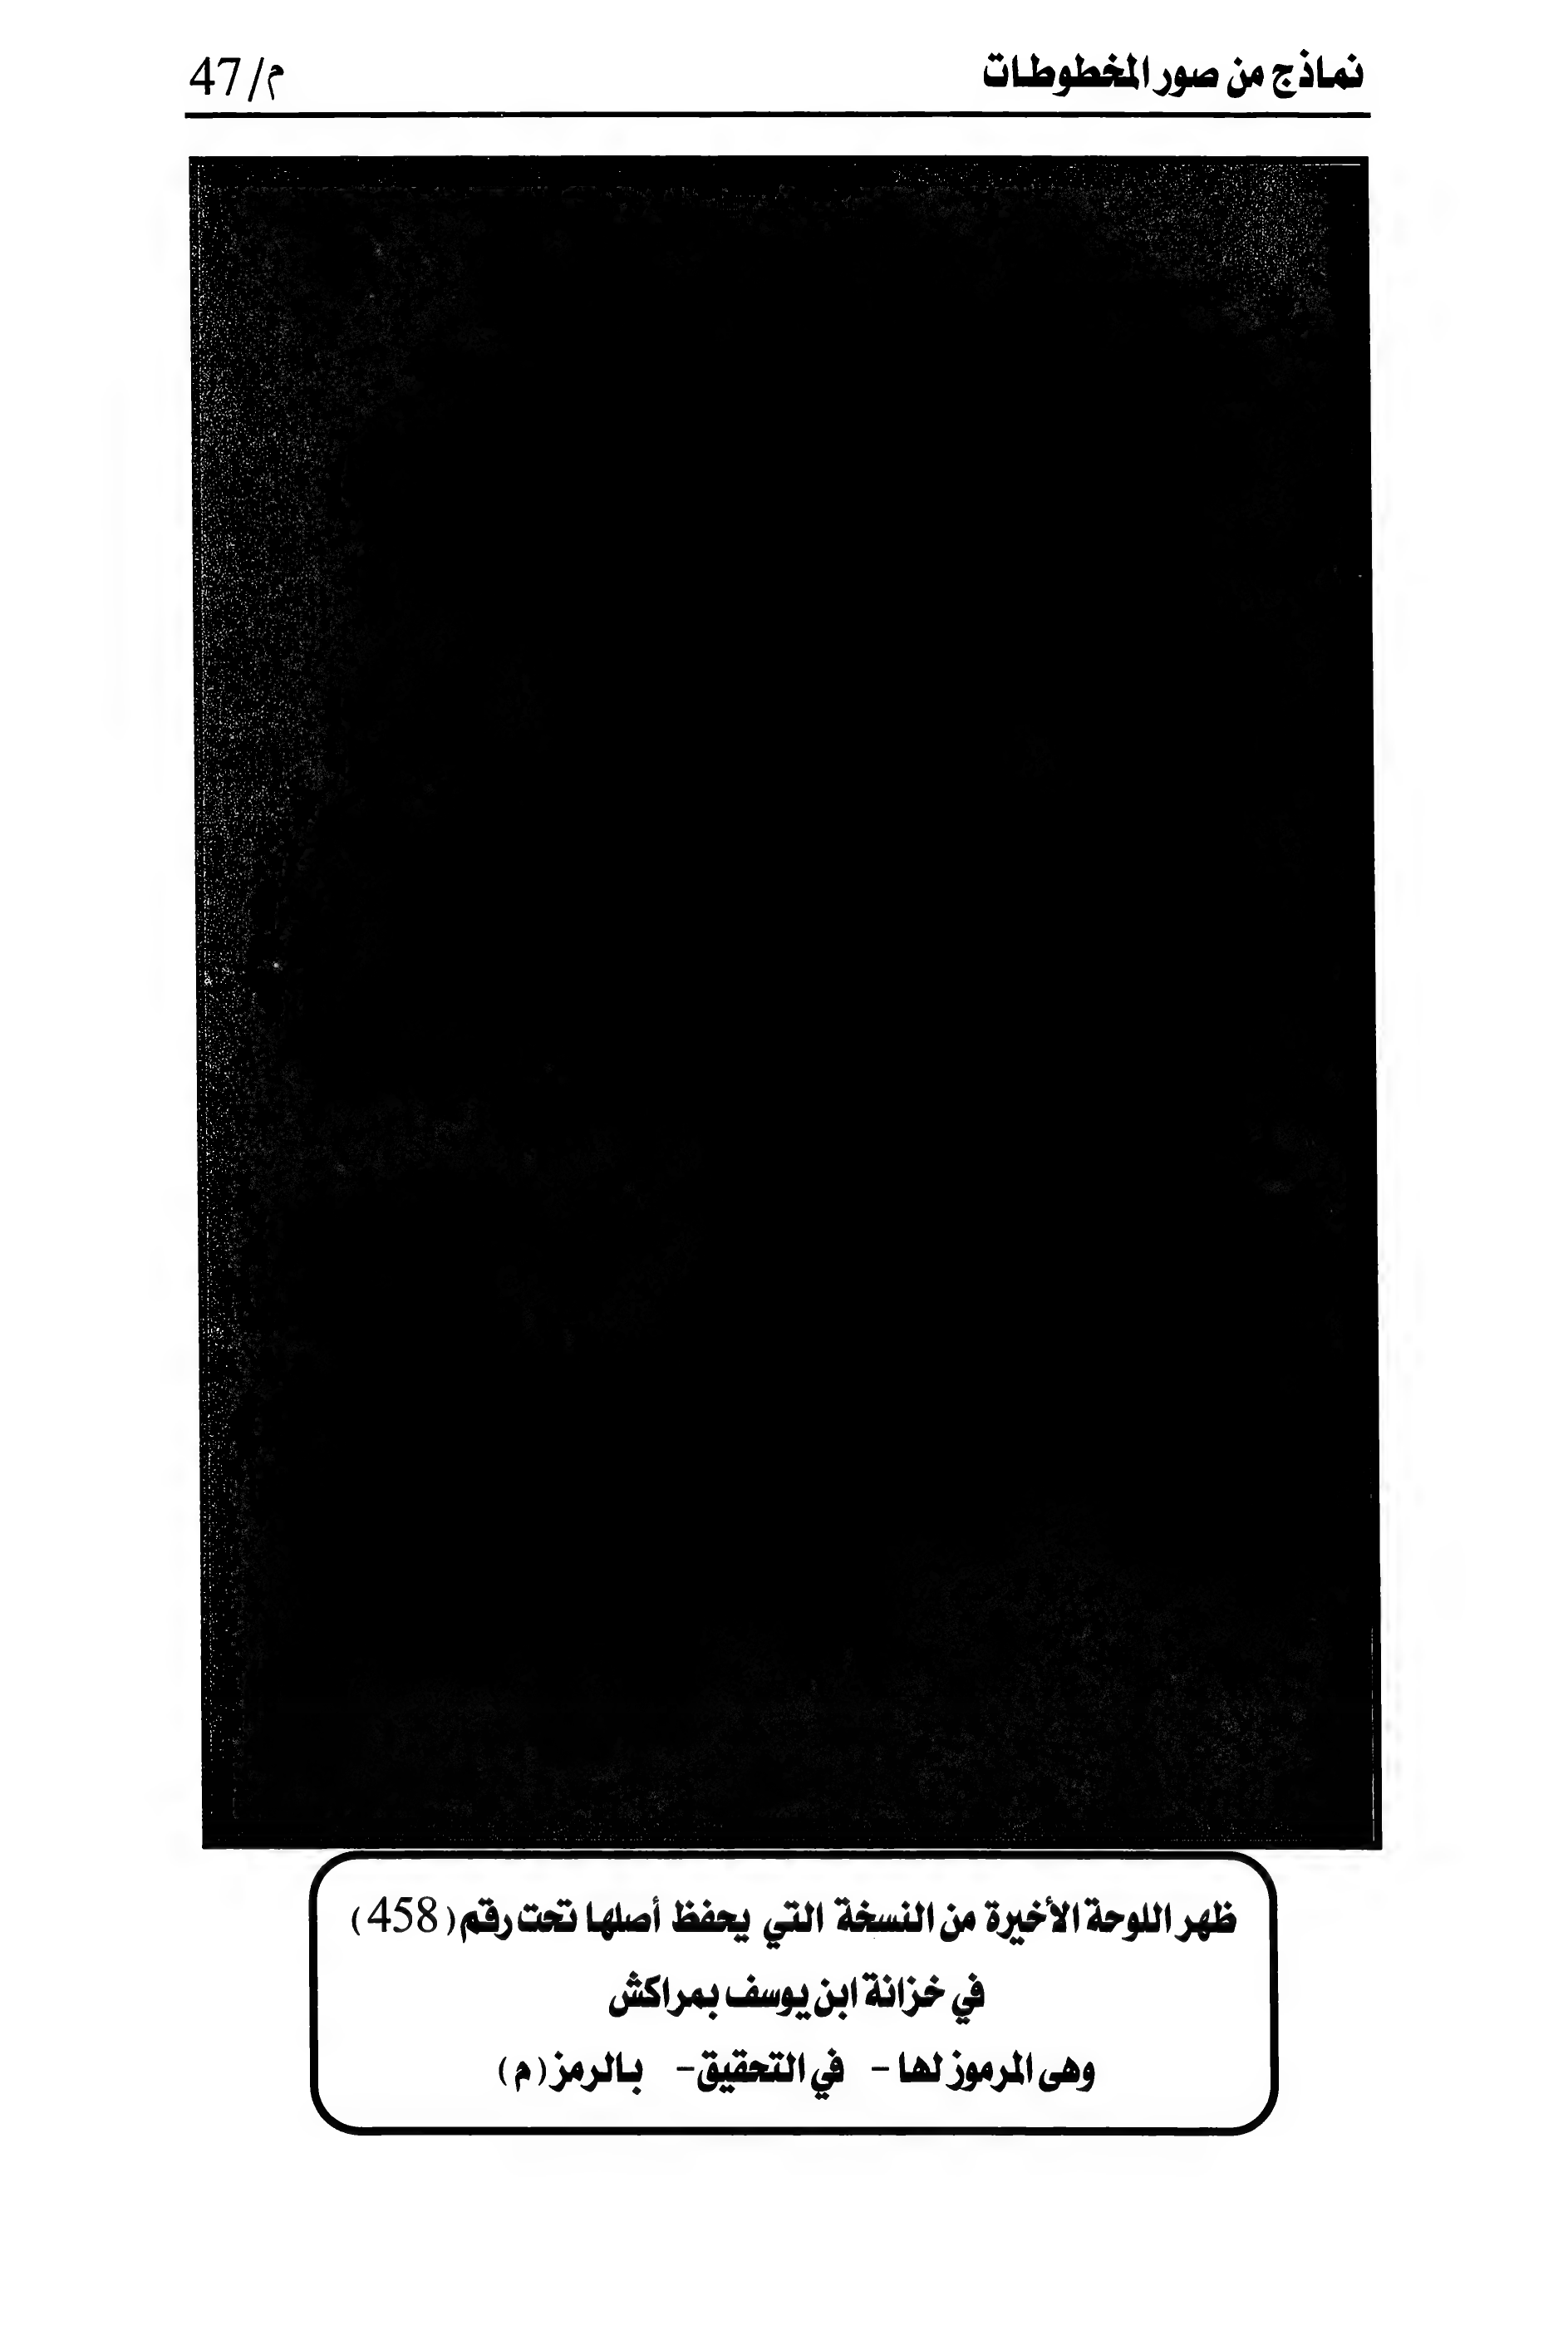 نماذج من صور المخطوطات
م/47
ظهر اللوحة الأخيرة من النسخة التي يحفظ أصلها تحت رقم (458)
في خزانة ابن يوسف بمراكش
وهى المرموز لها - في التحقيق - بالرمز (م)